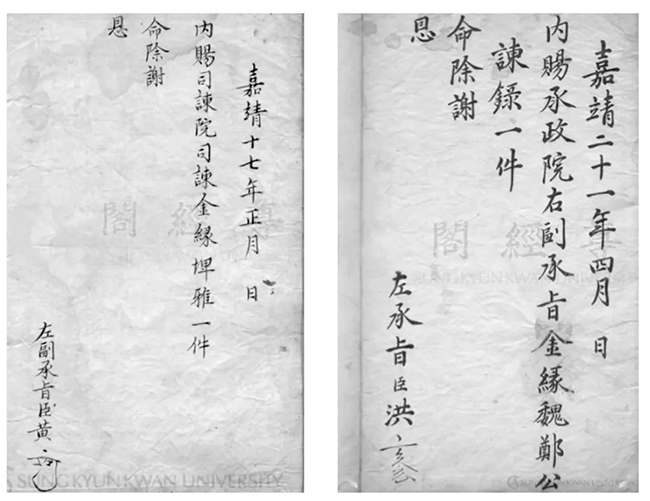 嘉靖十七年正月 日
内賜司諫院司諫金緣埤雅一件
命除謝
恩
左副承旨臣黃
嘉靖二十一年四月 日
内賜承政院右副承旨金緣魏鄭公
諫錄一件
命除謝
恩
左承旨臣洪
尊經閣
SUNGKYUNKWAN UNIVERSITY
尊經閣
SUNGKYUNKWAN UNIVERSITY